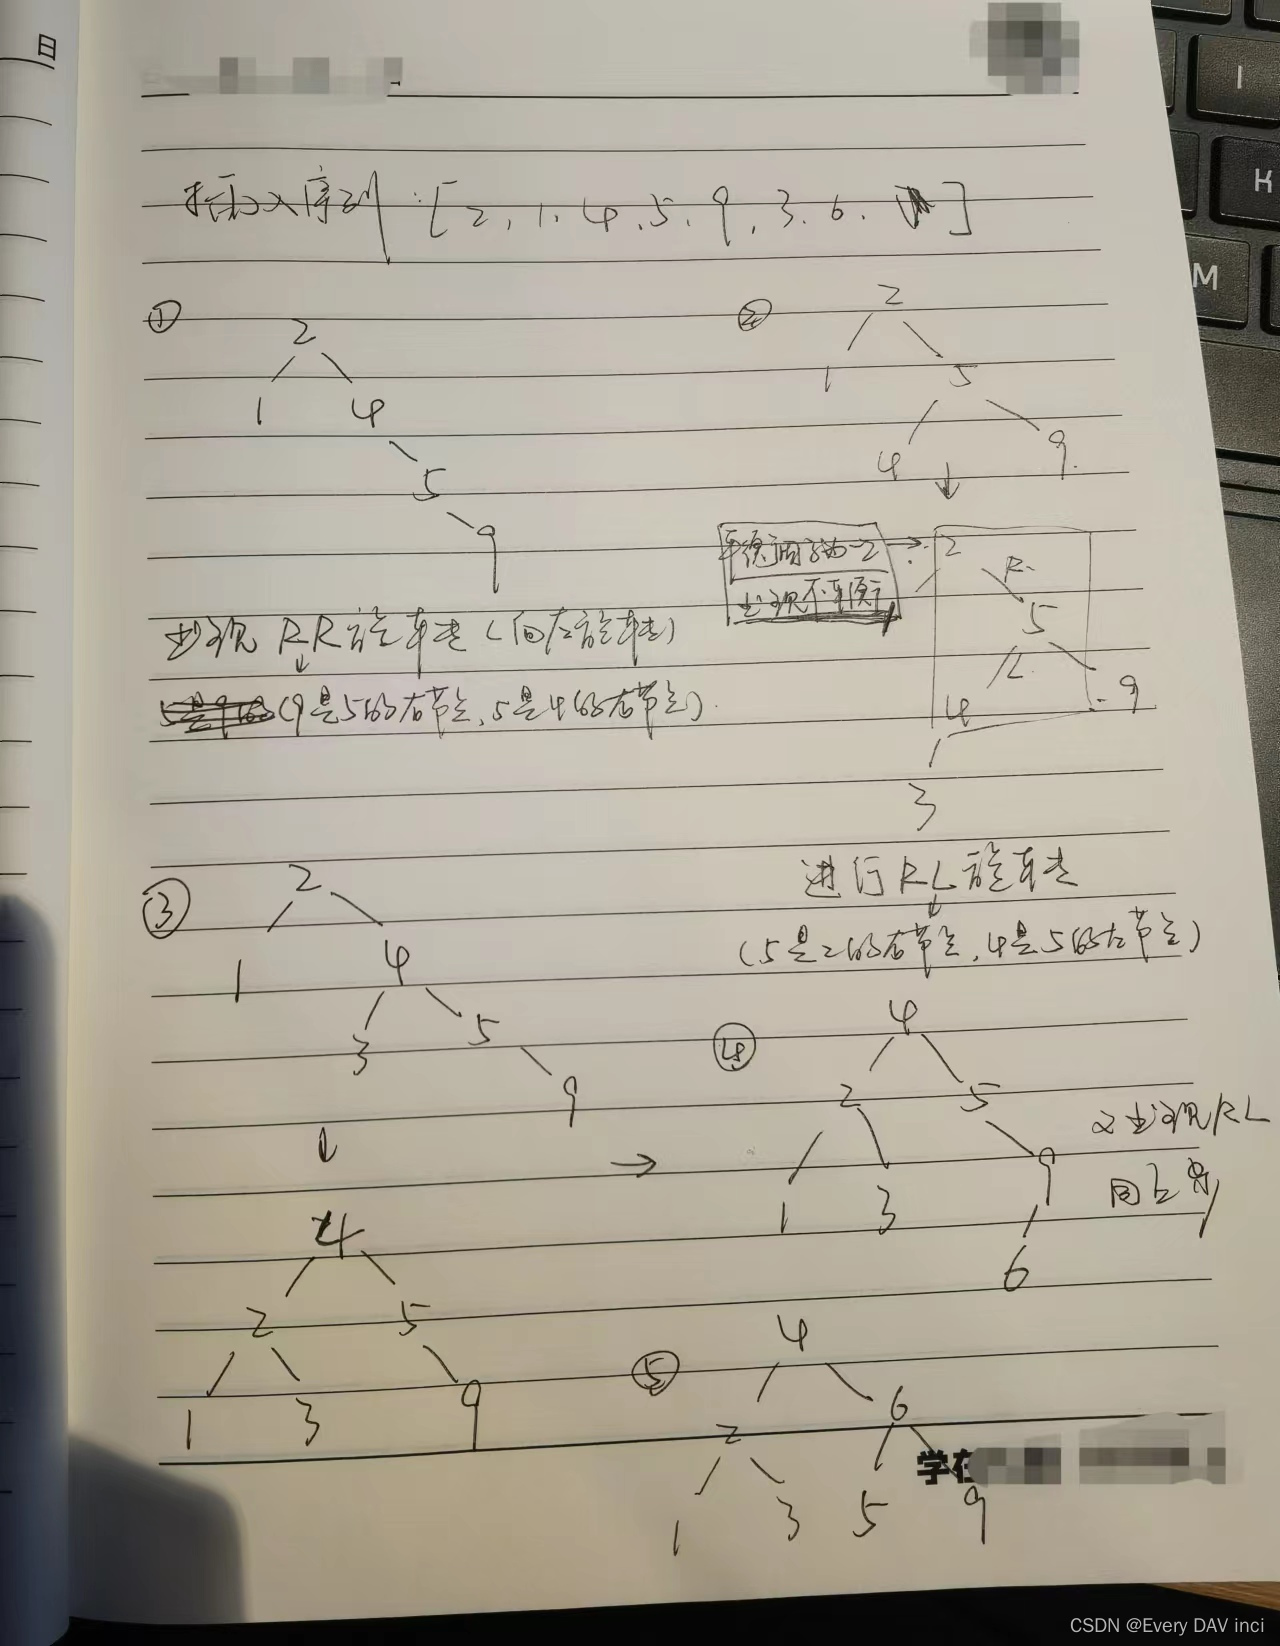 日
插入序列:[2,1,4,5,9,3,6, ]
①
2
1 4
5
9
出现RR旋转(向左旋转)
(9是5的右节点,5是4的右节点)
②
2
1 5
4 9
平衡因子为-2
出现不平衡
2
R
5
L
4 9
3
进行RL旋转
(5是2的右节点,4是5的左节点)
③
2
1 4
3 5
9
4
2 5
1 3 9
④
4
2 5
1 3 9
6
又出现RL
同上
⑤
4
2 6
1 3 5 9
学在
I
K
M
CSDN @Every DAV inci